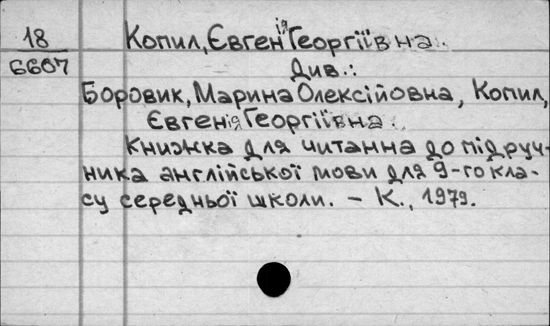 18
6607
Копил, Євгенія Георгіївна.
Див.:
Боровик, Марина Олексійовна, Копил,
Євгенія Георгіївна.
Книжка для читання до підруч-
ника англійської мови для 9-го кла-
су середньої школи. – К., 1979.